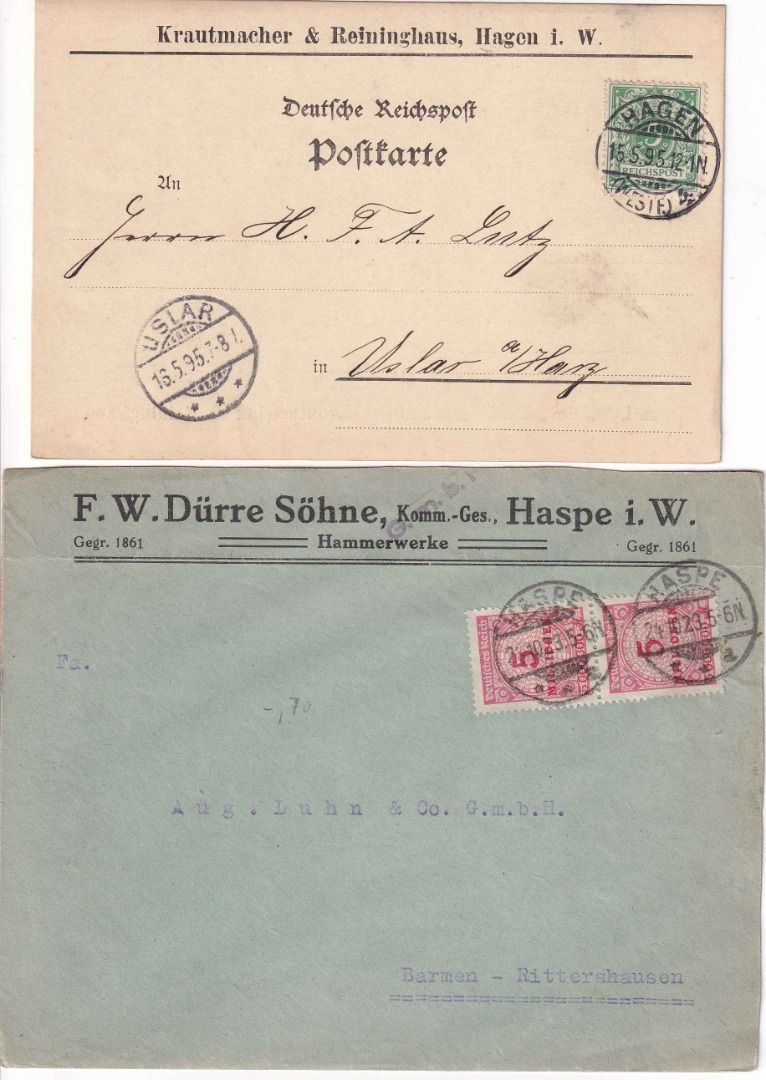 Krautmacher & Reininghaus, Hagen i. W.
Deutsche Reichspost
Postkarte
An
Herrn H. F. A. Lutz
in Uslar a/Harz
HAGEN
15.5.95.12-1N.
(WESTF.)
5
REICHSPOST
USLAR
16.5.95.7-8
G. m. b.
F. W. Dürre Söhne, Komm.-Ges., Haspe i. W.
Gegr. 1861 Hammerwerke Gegr. 1861
HASPE
HASPE
24.10.23.5-6N.
Deutsches Reich
5
MILLIONEN
5
Fa.
-,70
Aug. Luhn & Co. G.m.b.H.
Barmen - Rittershausen